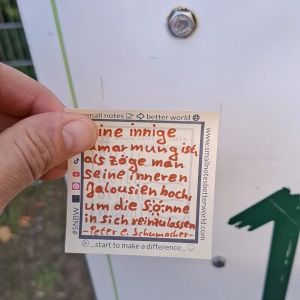 small notes better world
eine innige
Umarmung ist,
als zöge man
seine inneren
Jalousien hoch,
um die Sonne
in sich reinzulassen
- Peter E. Schumacher -
...start to make a difference...
www.smallnotesbetterworld.com
#SNBW